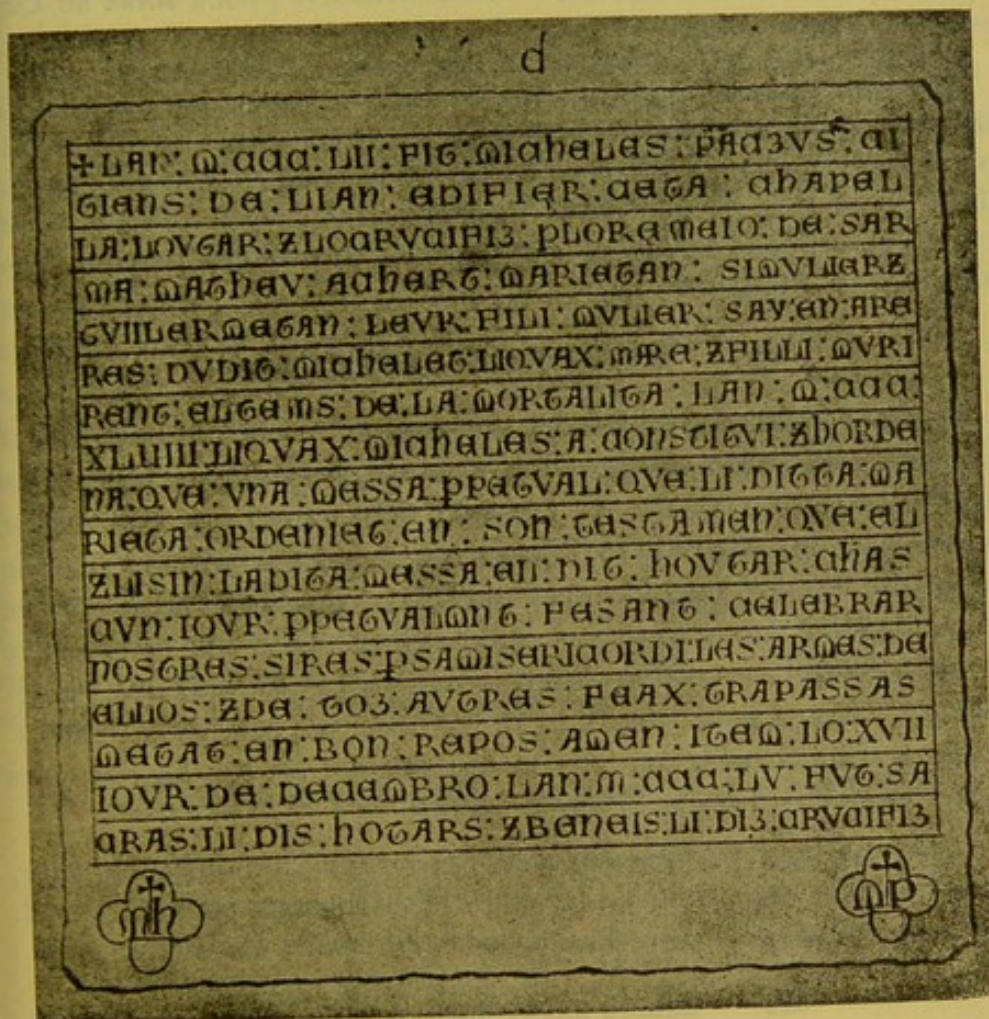 d
+LAN: M: CCC: LII: FIT: MICHELES: PACZVS: CI
TIENS: DE: LIAN: EDIFIER: CETA: CHAPEL
LA: LOVTAR: ZLOCRVCIFIZ: PLOREMEIO: DE: SAR
MA: MATHEV: ACHERT: MARIETAN: SIMVLIERZ
GVIILERMETAN: LEVR: FILI: MVLIER: SAY: EN: ARE
RES: DVDIT: MICHELET: LIQVAX: MÆRE: ZFILLI: MVRI
RENT: ELTEMS: DE: LA: MORTALITA: LAN: M: CCC:
XLVIIII: LIQVAX: MICHELES: A: CONSTITVI: ZHORDE
NA: QVE: VNA: MESSA: PPETVAL: QVE: LI: DITTA: MA
RIETA: ORDENIET: EN: SON: TESTAMEN: QVE: EL
ZLISIN: LADITA: MESSA: EN: DIT: HOVTAR: CHAS
CVN: IOVR: PPETVALMNT: FESANT: CELEBRAR
NOSTRES: SIRES: PSAMISERICORDI: LES: ARMES: DE
ELLOS: ZDE: TOZ: AVTRES: FEAX: TRAPASSAS
METAT: EN: BON: REPOS: AMEN: ITEM: LO: XVII
IOVR: DE: DECEMBRO: LAN: M: CCC: LV: FVT: SA
CRAS: LI: DIS: HOTARS: ZBENEIS: LI: DIZ: CRVCIFIZ
Mh MP